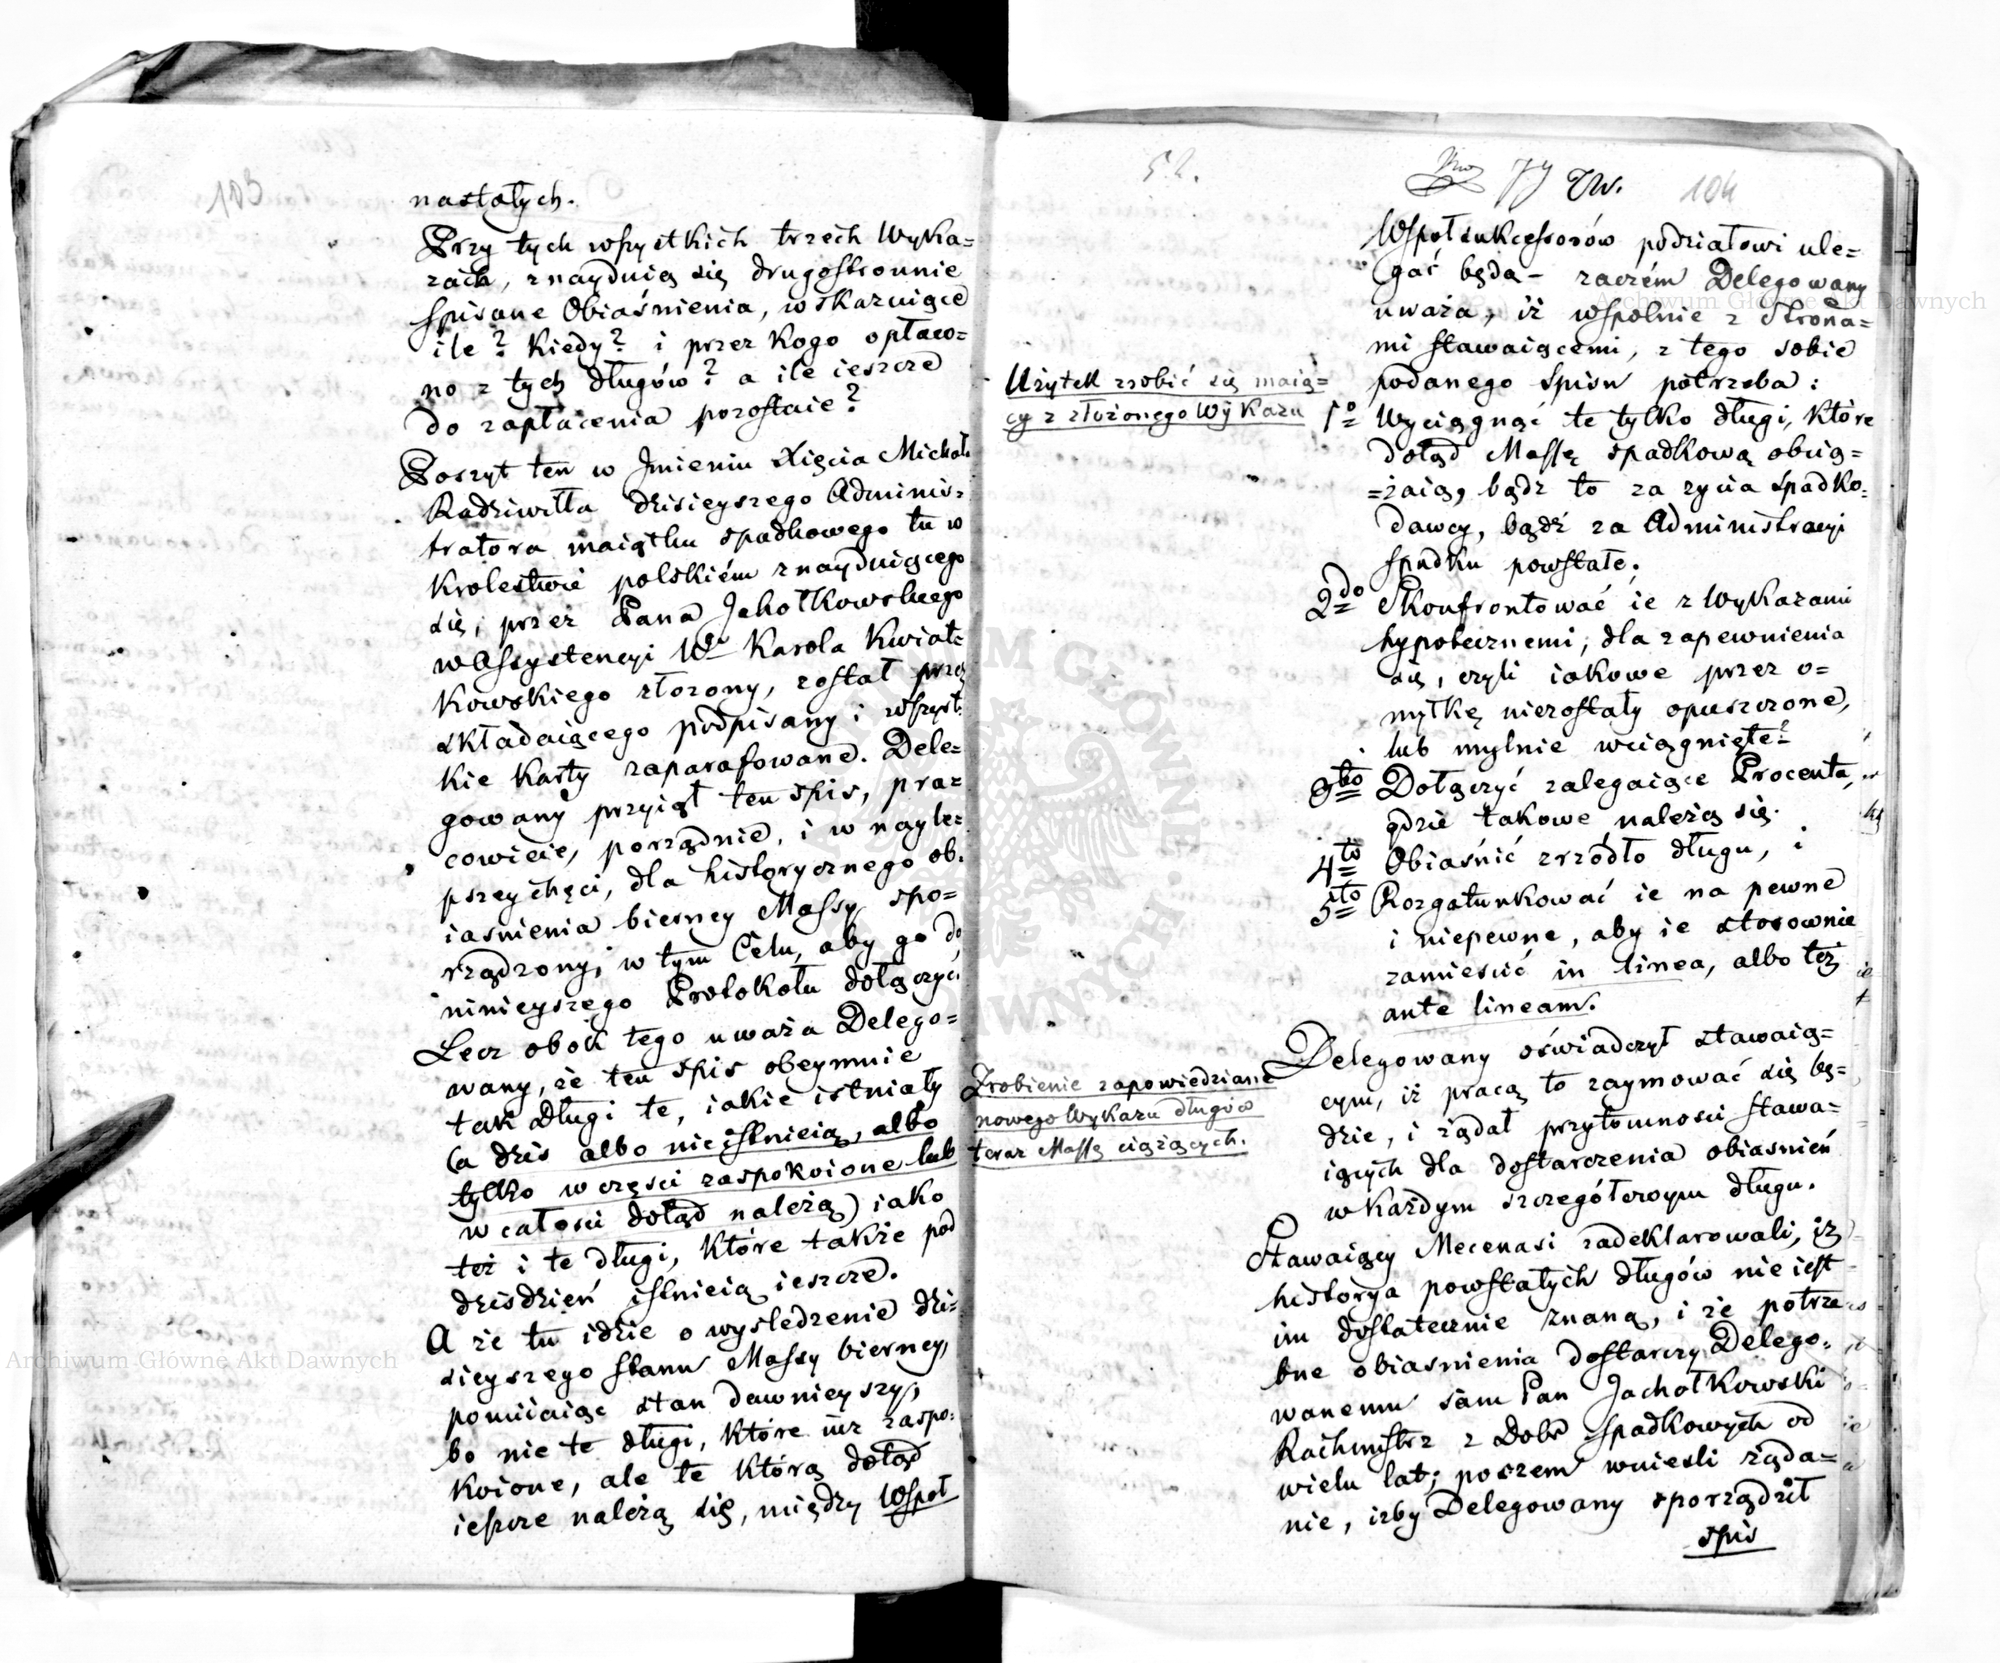 103
nastałych.
Przy tych wszystkich trzech Wyka=
zach, znayduią się drugostronnie
spisane Obiaśnienia, wskazuiące
ile? Kiedy? i przez Kogo opłaco=
no z tych długów? a ile ieszcze
do zapłacenia pozostaie?
Poszyt ten w Jmieniu Xięcia Michała
Radziwiłła dzisieyszego Adminis=
tratora maiątku spadkowego tu w
Krolestwie polskiém znayduiącego
się, przez Pana Jachołkowskiego
w Assystencyi Wgo Karola Kwiat=
kowskiego złożony, został przez
składaiącego podpisany i wszyst=
kie Karty zaparafowane. Dele=
gowany przyiął ten spis, pra=
cowicie, porządnie, i w nayle=
pszey chęci, dla historycznego ob=
iasnienia bierney Massy spo=
rządzony, w tym Celu, aby go do
ninieyszego Protokołu dołączyć.
Lecz obok tego uważa Delego=
wany, że ten spis obeymuie
tak długi te, iakie istniały
(a dziś albo nieistnieią, albo
tylko w części zaspokoione lub
w całości dotąd należą) iako
też i te długi, Które także pod
dziśdzień istnieią ieszcze.
A że tu idzie o wysledzenie dzi=
sieyszego stanu Massy bierney,
pomiiaiąc stan dawnieyszy,
bo nie te długi, Które iuż zaspo=
koione, ale te Które dotąd
ieszcze należą się, między Wspoł
52.
79
104
Wspołsukcessorów podziałowi ule=
gać będą – zaczém Delegowany
uważa, iż wspolnie z Strona=
mi stawaiącemi, z tego sobie
podanego Spisu potrzeba:
Użytek zrobić się maią=
cy z złożonego Wykazu
1o Wyciągnąć te tylko długi, które
dotąd Massę spadkową obcią=
=żaią, bądz to za zycia Spadko=
dawcy, bądź za Administracyi
spadku powstałe.
2do Skonfrontować ie z Wykazami
hypotecznemi, dla zapewnienia
się, czyli iakowe przez o=
myłkę niezostały opuszczone,
lub mylnie wciągnięte?
3tio Dołączyć zalegaiące Procenta,
gdzie takowe należą się.
4to Obiaśnić zrzódło długu, i
5to Rozgatunkować ie na pewne
i niepewne, aby ie stosownie
zamieścić in linea, albo też
ante lineam.
Zrobienie zapowiedziane
nowego Wykazu długów
teraz Massę ciążących.
Delegowany oświadczył stawaią=
cym, iż pracą to zaymować się bę=
dzie, i żądał przytomności stawa=
iących dla dostarczenia obiasnień
w Każdym szczegółowym długu.
Stawaiący Mecenasi zadeklarowali, iż
historya powstałych długów nie iest
im dostatecznie znaną, i że potrze
bne obiasnienia dostarczy Delego=
wanemu sam Pan Jachołkowski
Rachmistrz z Dobr spadkowych od
wielu lat; poczem wniesli żąda=
nie, iżby Delegowany sporządził
spis
Archiwum Główne Akt Dawnych
Archiwum Główne Akt Dawnych
ARCHIWUM GŁÓWNE AKT DAWNYCH